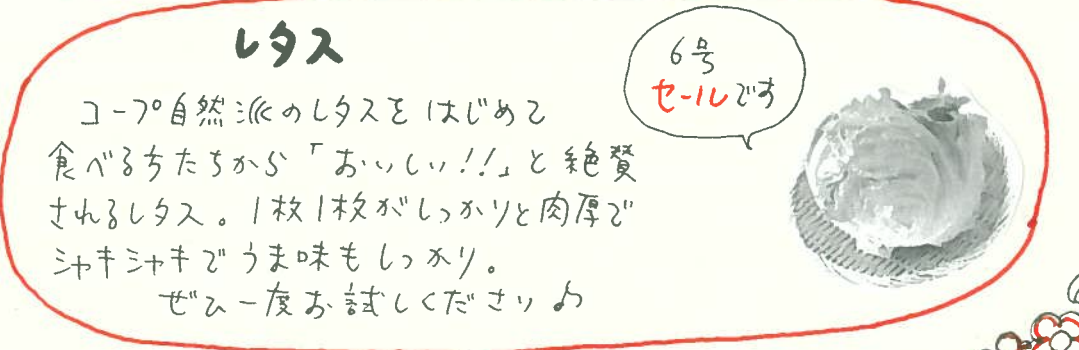 レタス
6号
セールです
コープ自然派のレタスをはじめて
食べる方たちから「おいしい!!」と絶賛
されるレタス。1枚1枚がしっかりと肉厚で
シャキシャキでうま味もしっかり。
ぜひ一度お試しください♪